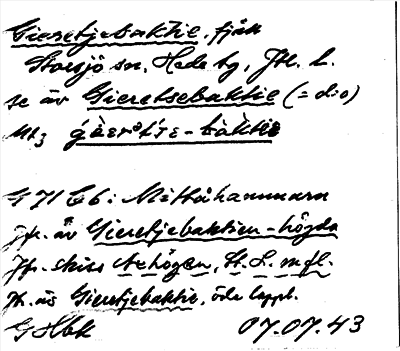 Gieretjebaktie, fjäll
Storsjö sn, Hede tg, Jtl. l.
se äv Gieretsebaktie (= d:o)
Ut₃ g̀ɛerət'tɛ-bàktiɛ
G 71 C 6: Mittåhammarn
jfr. äv Gieretjebaktien-högda
Jfr. skiss Axhögen, St. L. m fl.
Jfr. äv Gieretjebaktie, öde lappl.
G Hbk 07.07.43